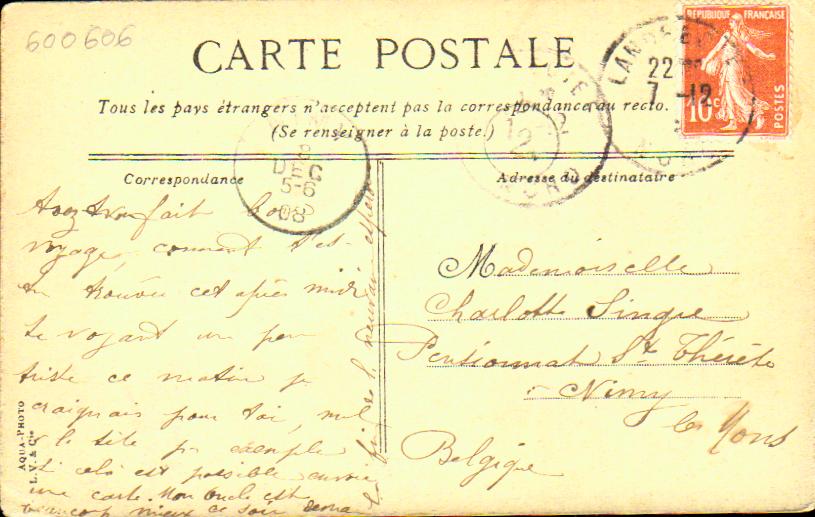 600606
CARTE POSTALE
REPUBLIQUE FRANÇAISE
10c
POSTES
22
7 -12
NORD
Tous les pays étrangers n'acceptent pas la correspondance au recto.
(Se renseigner à la poste.)
8
DEC
5-6
08
Correspondance
Adresse du destinataire
fait bon
voyage, comment t'es-
tu trouvée cet après midi
te voyant un peu
triste ce matin je
craignais pour toi, mal
à la tête par exemple
Si cela est possible envoie
une carte. Mon Oncle est
beaucoup mieux ce soir
Mademoiselle
Charlotte Singre
Pensionnat Ste Thérèse
Nimy
les Mons
Belgique
AQUA-PHOTO
L. V. & Cie